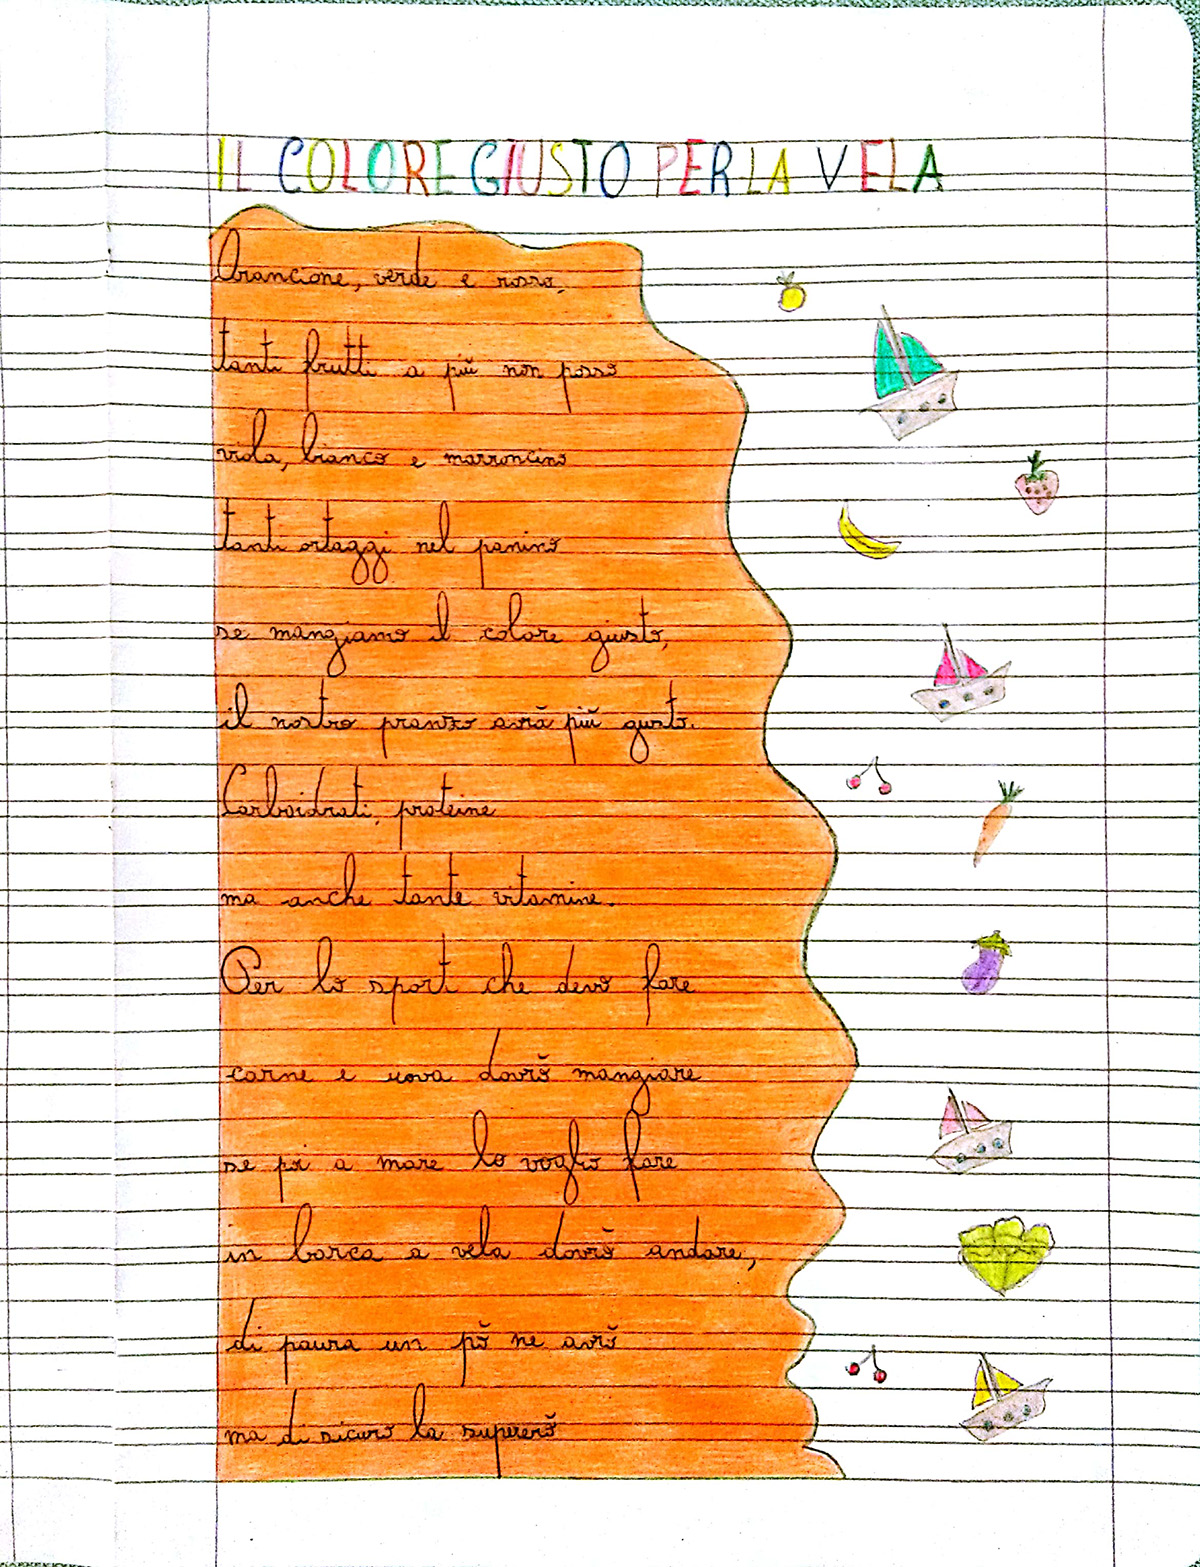 IL COLORE GIUSTO PER LA VELA
Arancione, verde e rosso,
tanti frutti a più non posso
viola, bianco e marroncino
tanti ortaggi nel panino
se mangiamo il colore giusto,
il nostro pranzo avrà più gusto.
Carboidrati, proteine
ma anche tante vitamine.
Per lo sport che devo fare
carne e uova dovrò mangiare
se poi a mare lo voglio fare
in barca a vela dovrò andare,
di paura un pò ne avrò
ma di sicuro la supererò